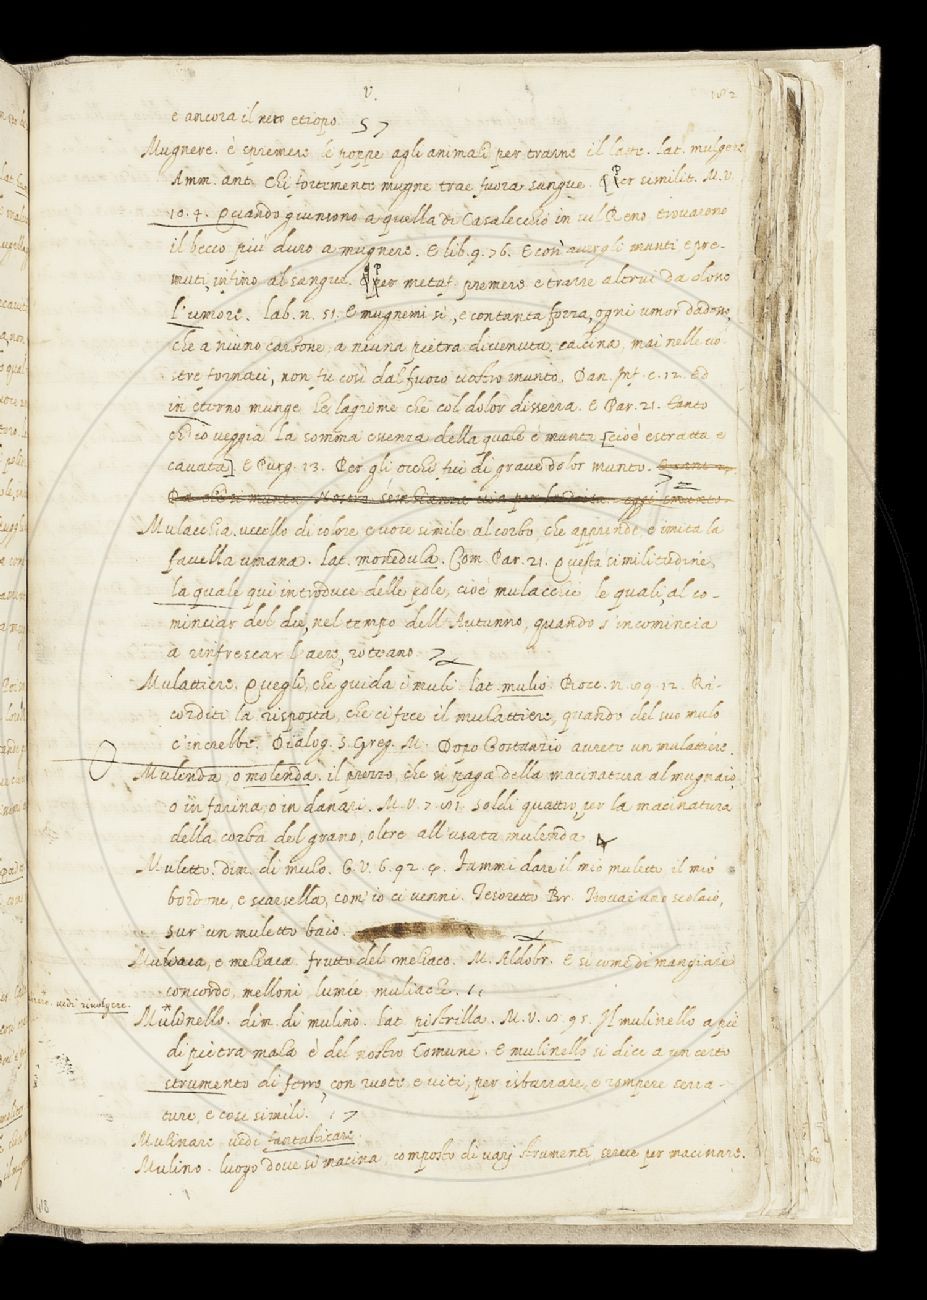 v.
182
e ancora il nero etiopo. 57
Mugnere. è spremere le poppe agli animali per trarne il latte. lat. mulgere
Amm. ant. chi fortemente mugne trae fuora sangue. ¶ Per similit. M. V.
10. 4. Quando giunsono a quella di Casalecchio in sul Reno trovarono
il becco più duro a mugnere. E lib. 9. 76. E così avergli munti e pre-
muti, infino al sangue. ¶ per metaf. premere e trarre altrui da dosso
l'umore. Lab. n. 51. E mugnemi sì, e con tanta forza, ogni umor da dosso,
che a niuno carbone, a niuna pietra divenuta calcina, mai nelle vo-
stre fornaci, non fu così dal fuoco vostro munto. Dan. Inf. c. 12. Ed
in eterno munge le lagrime che col dolor disserra. E Par. 21. tanto
ch'io veggia la somma essenza della quale è munta [cioè estratta e
cavata]. E Purg. 13. Per gli occhi fui di grave dolor munto.
Mulacchia. uccello di colore e voce simile al corbo, che apprende e imita la
favella umana. lat. monedula. Com. Par. 21. Questa similitudine,
la quale qui introduce delle pole, cioè mulacchie, le quali, al co-
minciar del die, nel tempo dell'Autunno, quando s'incomincia
a rinfrescar l'aere, roteano.
Mulattiere. Quegli, che guida i muli. lat. mulio. Bocc. n. 89. 12. Ri-
corditi la risposta, che ci fece il mulattiere, quando del suo mulo
c'increbbe. Dialog. S. Greg. M. Dopo Costanzio avrete un mulattiere.
Mulenda, o molenda. il prezzo, che si paga della macinatura al mugnaio,
o in farina, o in danari. M. V. 7. 81. Soldi quattro, per la macinatura
della corba del grano, oltre all'usata mulenda
Muletto. dim. di mulo. G. V. 6. 92. 4. Fammi dare il mio muletto il mio
bordone, e scarsella, com'io ci venni. Tesoretto Br. Trovai uno scolaio,
sur un muletto baio.
Muliaca, e meliaca. frutto del meliaco. M. Aldobr. E si come di mangiare
concorde, melloni, lumie, muliache.
vedi rivolgere.
Mulinello. dim. di mulino. lat. pistrilla. M. V. 8. 95. Il mulinello a piè
di pietra mala è del nostro Comune. E mulinello si dice a un certo
strumento di ferro, con ruote, e viti, per isbarrare, e rompere serra-
ture, e cose simili. 17
Mulinare. vedi fantasticare.
Mulino. luogo dove si macina, composto di varj strumenti, serve per macinare.